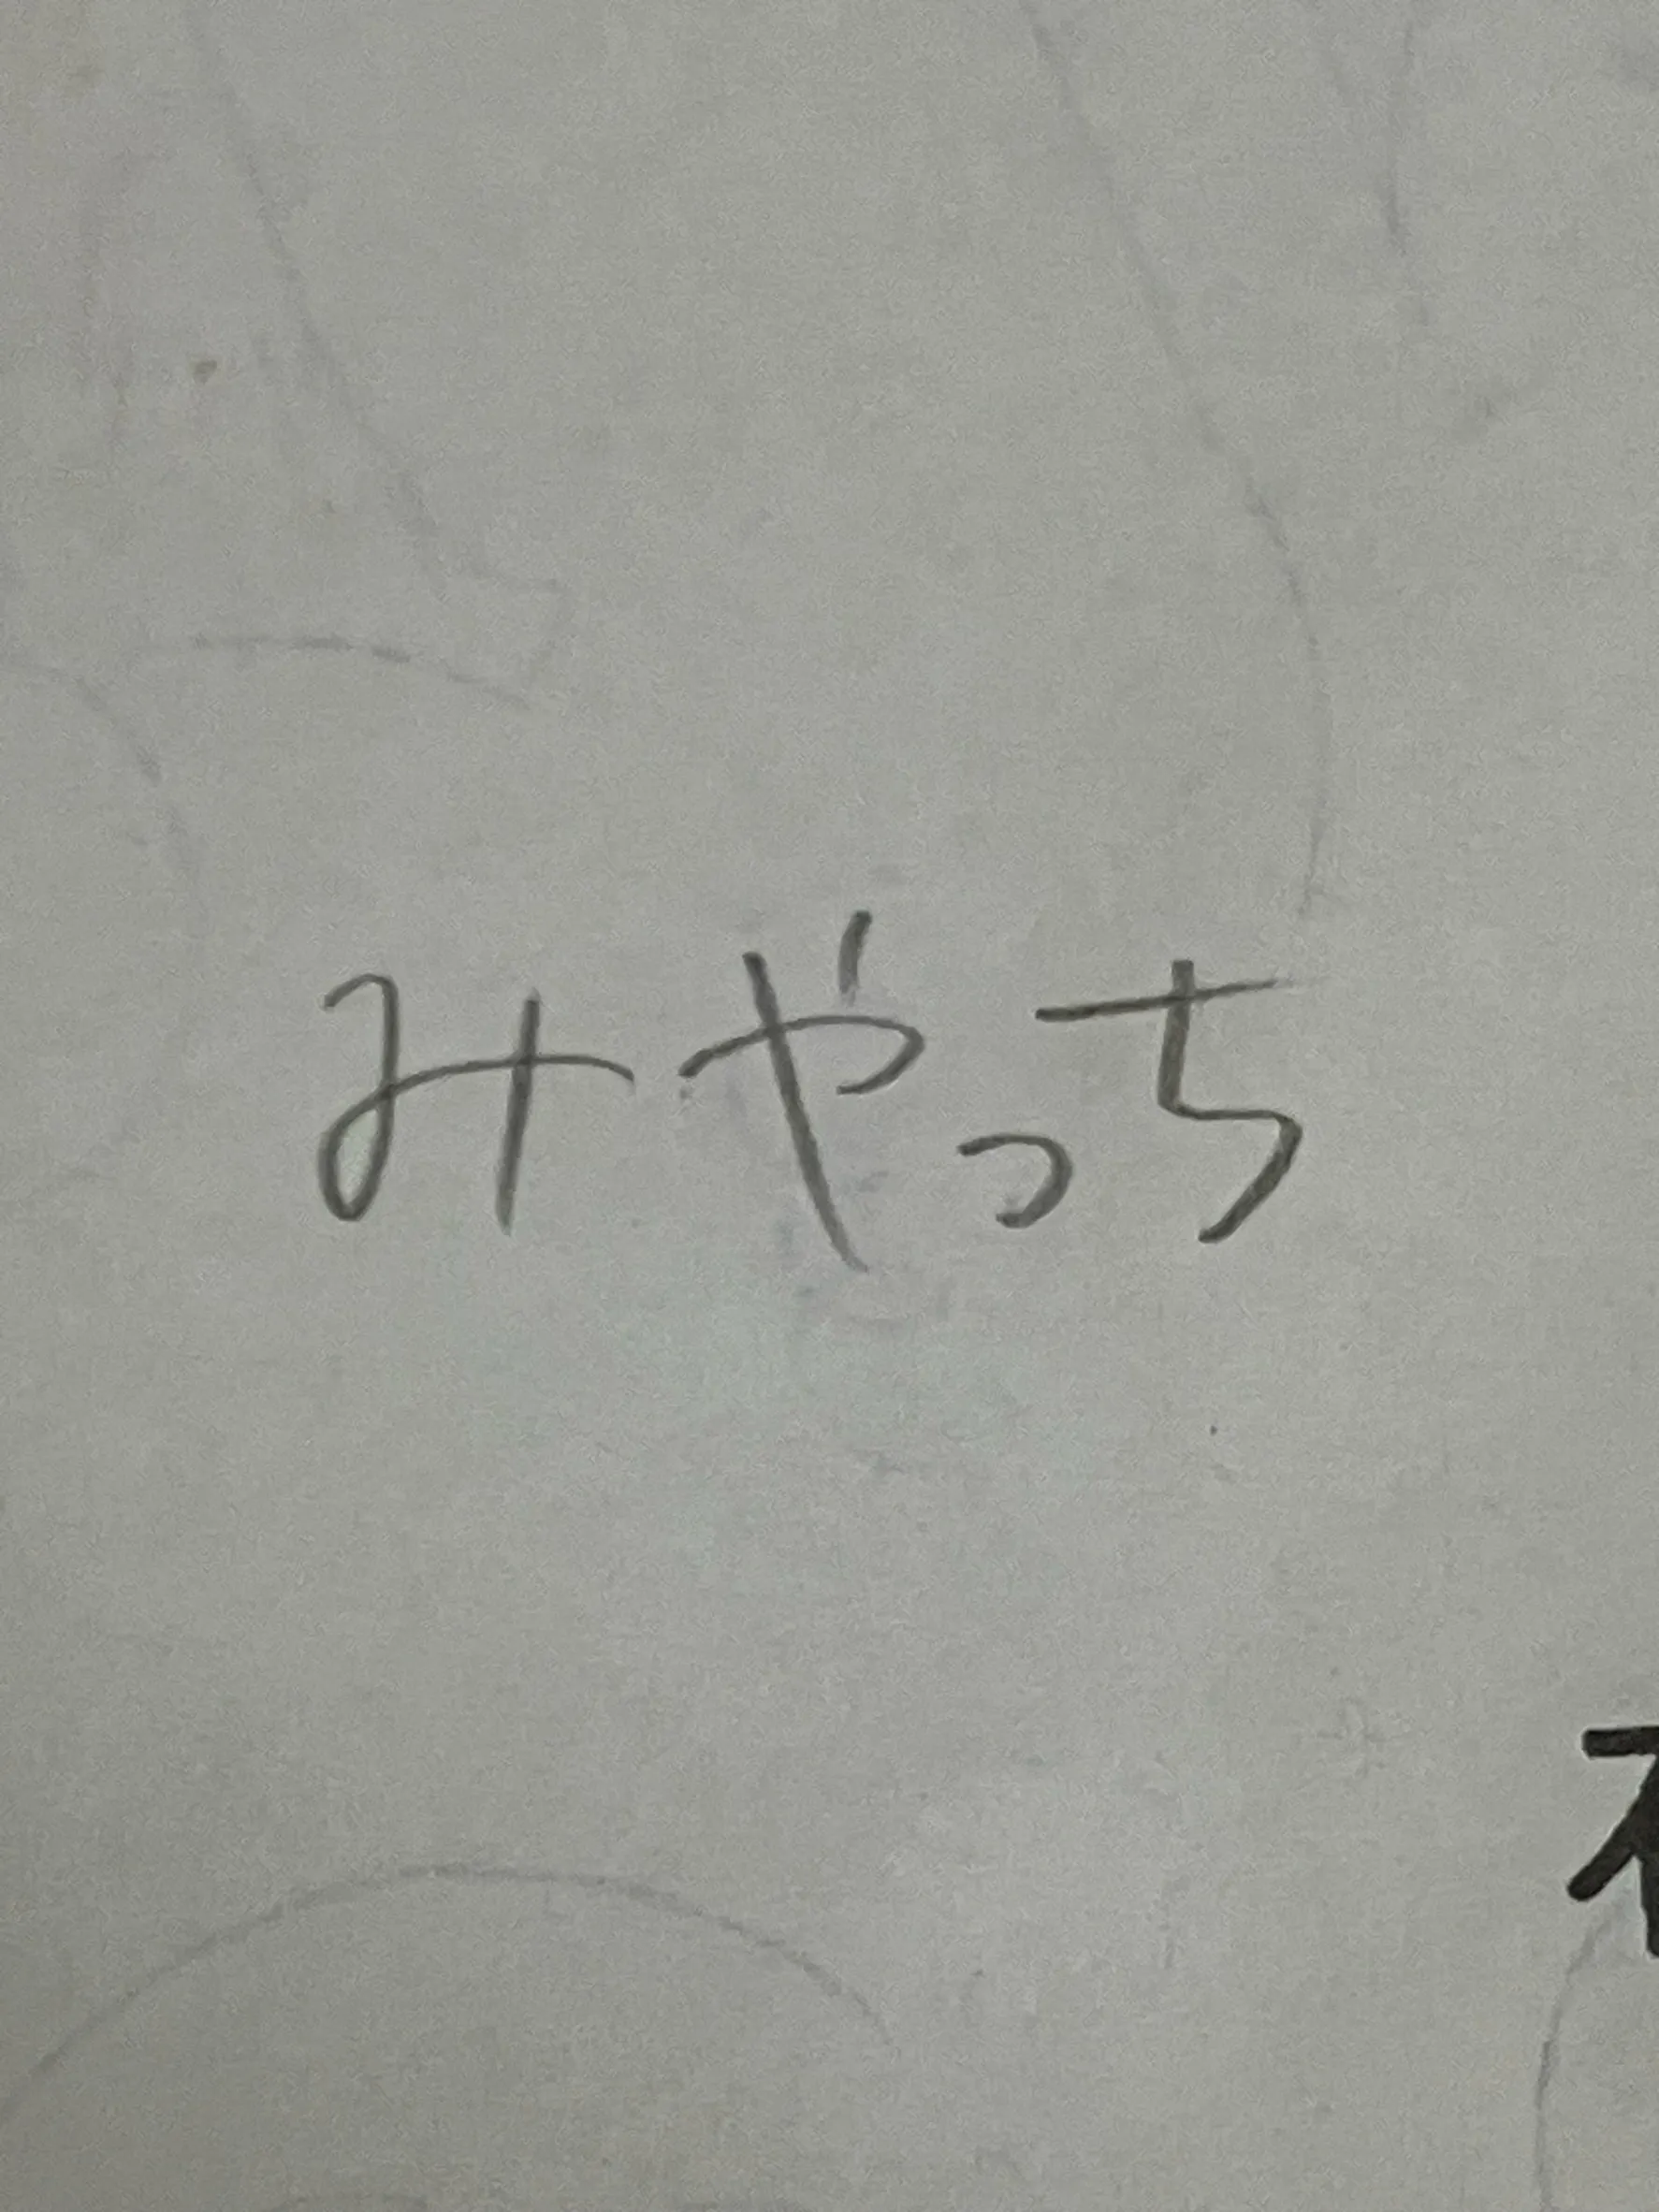 みやっち